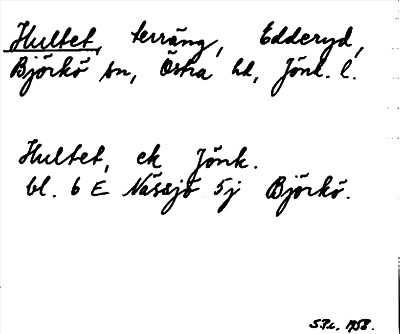 Hultet, terräng, Edderyd,
Björkö sn, Östra hd, Jönk. l.
Hultet, ek Jönk.
bl. 6 E Nässjö 5j Björkö.
S.P.L. 1958.